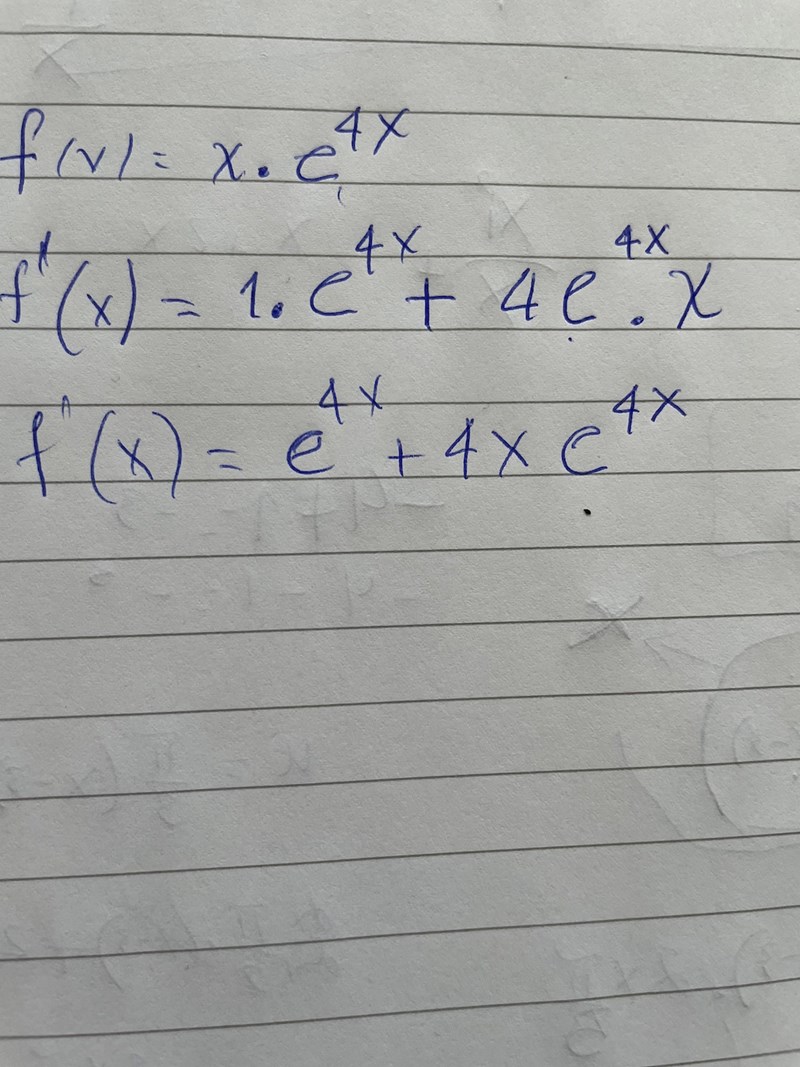 f(x) = x · e^{4x}
f'(x) = 1 · e^{4x} + 4e^{4x} · x
f'(x) = e^{4x} + 4x e^{4x}